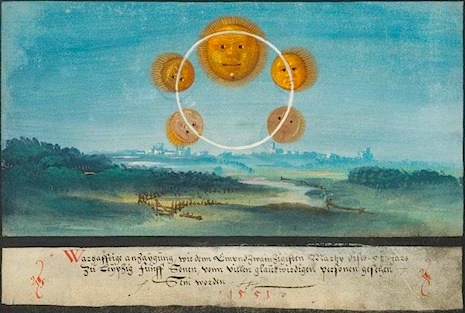 Warhafftige anzaygung, wie dem Eunundzwaintzigisten Martty diss 51 jars
Zu Leyptzig Funff Sonen, vonn Villen glaubwirdigen personen gesehen
Seni worden
1551